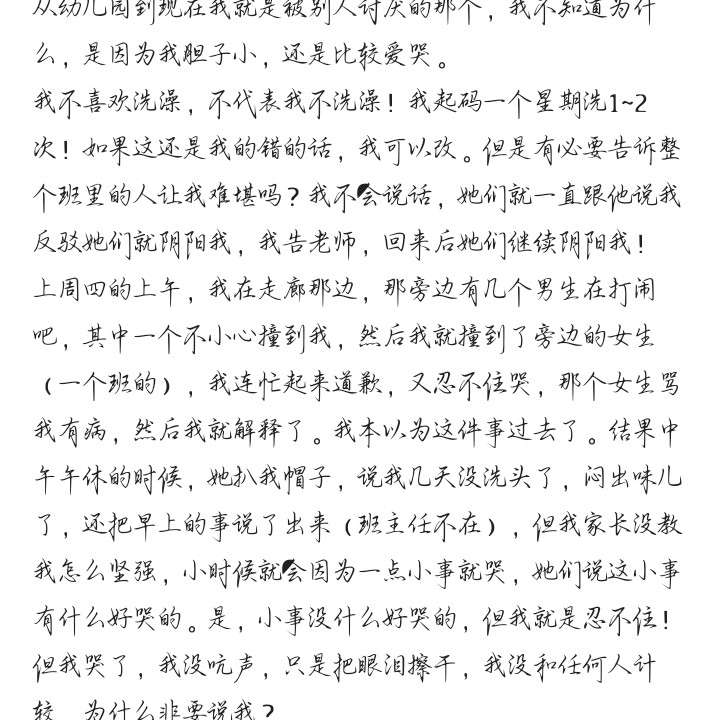 从幼儿园到现在我就是被别人讨厌的那个，我不知道为什
么，是因为我胆子小，还是比较爱哭。
我不喜欢洗澡，不代表我不洗澡！我起码一个星期洗1~2
次！如果这还是我的错的话，我可以改。但是有必要告诉整
个班里的人让我难堪吗？我不会说话，她们就一直跟他说我
反驳她们就阴阳我，我告老师，回来后她们继续阴阳我！
上周四的上午，我在走廊那边，那旁边有几个男生在打闹
吧，其中一个不小心撞到我，然后我就撞到了旁边的女生
（一个班的），我连忙起来道歉，又忍不住哭，那个女生骂
我有病，然后我就解释了。我本以为这件事过去了。结果中
午午休的时候，她扒我帽子，说我几天没洗头了，闷出味儿
了，还把早上的事说了出来（班主任不在），但我家长没教
我怎么坚强，小时候就会因为一点小事就哭，她们说这小事
有什么好哭的。是，小事没什么好哭的，但我就是忍不住！
但我哭了，我没吭声，只是把眼泪擦干，我没和任何人计
较，为什么非要说我？